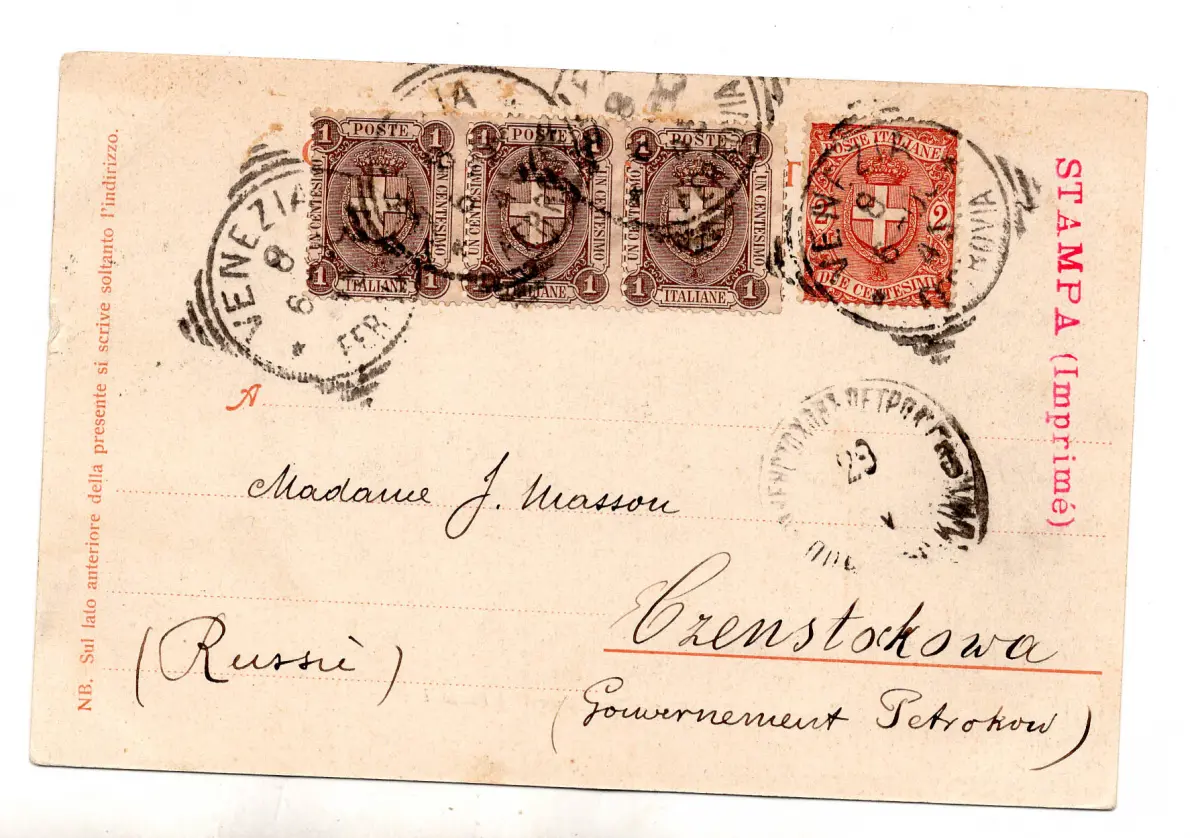 1 POSTE 1
UN CENTESIMO
UN CENTESIMO
1 ITALIANE 1
1 POSTE 1
UN CENTESIMO
UN CENTESIMO
1 ITALIANE 1
1 POSTE 1
UN CENTESIMO
UN CENTESIMO
1 ITALIANE 1
POSTE ITALIANE
2 2
DUE CENTESIMI
VENEZIA
8
FER
STAMPA (Imprimé)
NB. Sul lato anteriore della presente si scrive soltanto l'indirizzo.
A
29
Madame J. Masson
Czenstokowa
(Russie)
(Gouvernement Petrokow)